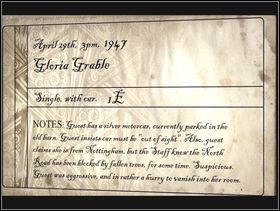 April 29th, 3pm, 1947
Gloria Grable
Single, with car. 1E
NOTES: Guest has a silver motorcar, currently parked in the
old barn. Guest insists car must be "out of sight". Also, guest
claims she is from Nottingham, but the Staff know the North
Road has been blocked by fallen trees, for some time. Suspicious.
Guest was aggressive, and in rather a hurry to vanish into her room.